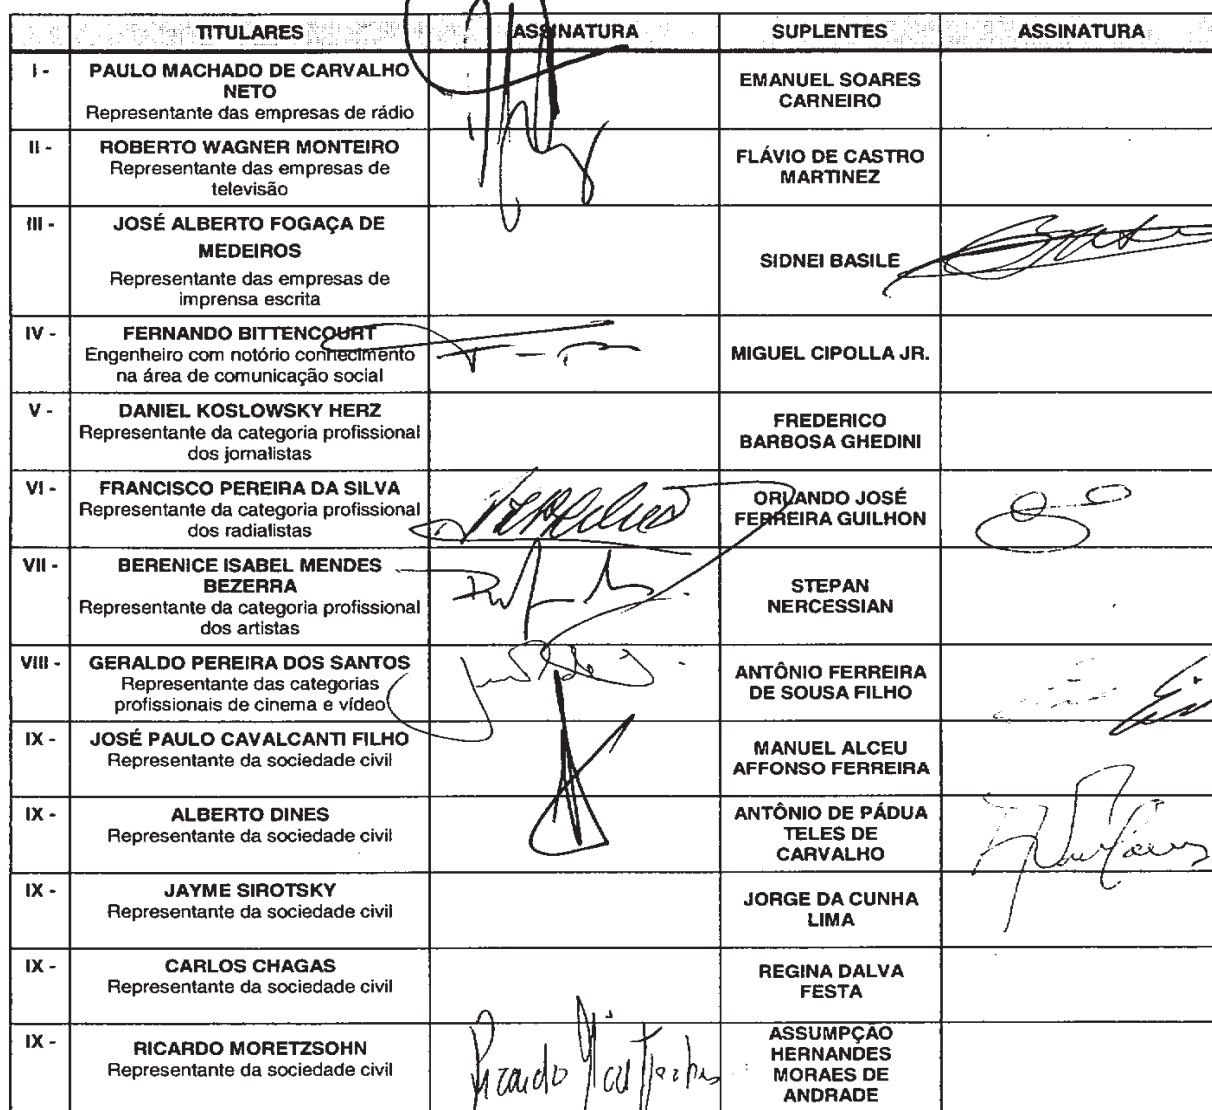 TITULARES ASSINATURA SUPLENTES ASSINATURA
I - PAULO MACHADO DE CARVALHO
NETO
Representante das empresas de rádio
EMANUEL SOARES
CARNEIRO
II - ROBERTO WAGNER MONTEIRO
Representante das empresas de
televisão
FLÁVIO DE CASTRO
MARTINEZ
III - JOSÉ ALBERTO FOGAÇA DE
MEDEIROS
Representante das empresas de
imprensa escrita
SIDNEI BASILE
IV - FERNANDO BITTENCOURT
Engenheiro com notório conhecimento
na área de comunicação social
MIGUEL CIPOLLA JR.
V - DANIEL KOSLOWSKY HERZ
Representante da categoria profissional
dos jornalistas
FREDERICO
BARBOSA GHEDINI
VI - FRANCISCO PEREIRA DA SILVA
Representante da categoria profissional
dos radialistas
ORLANDO JOSÉ
FERREIRA GUILHON
VII - BERENICE ISABEL MENDES
BEZERRA
Representante da categoria profissional
dos artistas
STEPAN
NERCESSIAN
VIII - GERALDO PEREIRA DOS SANTOS
Representante das categorias
profissionais de cinema e vídeo
ANTÔNIO FERREIRA
DE SOUSA FILHO
IX - JOSÉ PAULO CAVALCANTI FILHO
Representante da sociedade civil
MANUEL ALCEU
AFFONSO FERREIRA
IX - ALBERTO DINES
Representante da sociedade civil
ANTÔNIO DE PÁDUA
TELES DE
CARVALHO
IX - JAYME SIROTSKY
Representante da sociedade civil
JORGE DA CUNHA
LIMA
IX - CARLOS CHAGAS
Representante da sociedade civil
REGINA DALVA
FESTA
IX - RICARDO MORETZSOHN
Representante da sociedade civil
Ricardo
ASSUMPÇÃO
HERNANDES
MORAES DE
ANDRADE